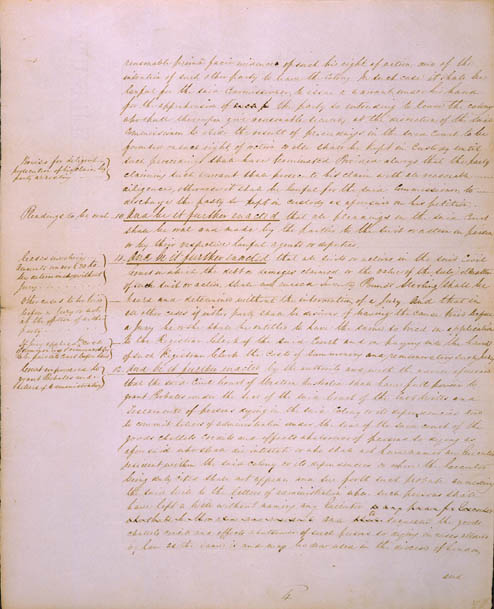 reasonable primâ facie evidence of such his right of action and of the
intention of such other party to leave the Colony in such case it shall be
lawful for the said Commissioner to issue a warrant under his hand
for the apprehension of the party so intending to leave the colony
who shall thereupon give reasonable security at the discretion of the said
Commissioner to abide the result of proceedings in the said Court to be
founded on such right of action or else shall be kept in Custody until
such proceedings shall have terminated Provided always that the party
claiming such warrant shall prosecute his claim with all reasonable
diligence, otherwise it shall be lawful for the said Commissioner to
discharge the party so kept in custody as aforesaid on his petition.
Proviso for diligent
prosecution of his claim by
party arresting
Pleadings to be oral
10. And be it further enacted that all pleadings in the said Court
shall be oral and made by the parties to the suit or action in person
or by their respective lawful agents or deputies.
Cases involving
to
be determined without
Jury.
11. And be it further enacted that all suits or actions in the said Civil
Court wherein the debt or damages claimed or the value of the subject matter
of such suit or action shall not exceed twenty Pounds Sterling shall be
heard and determined without the intervention of a Jury And that in
all other cases if either party shall be desirous of having the cause tried before
a jury he or she shall be entitled to have the same so tried on application
to the Registrar Clerk of the said Court and on paying into the hands
of such Registrar Clerk the costs of summoning and
Other cases to be tried
before a Jury or not
at the option of either
party
If Jury applied for
Court empowered to
grant Probates and
Letters of Administration
12. And be it further enacted by the authority and with the consent aforesaid
that the said Civil Court of Western Australia shall have full power to
grant Probates under the Seal of the said Court of the last Wills and
Testaments of persons dying in the said Colony or its dependencies and
to commit letters of administration under the Seal of the same Court of the
goods chattels credits and effects whatsoever of persons so dying as
aforesaid who shall die intestate or who shall not have named any Executor
present within the said colony or its dependencies or where the Executor
being duly cited shall not appear and sue forth such probate annexing
the said Will to the letters of administration when such persons shall
have left a Will without naming any Executor or any person for Executor
and
goods
chattels credits and effects whatsoever of such persons so dying in cases allowed
as far as the same is and may be allowed in the diocese of London,
and
4